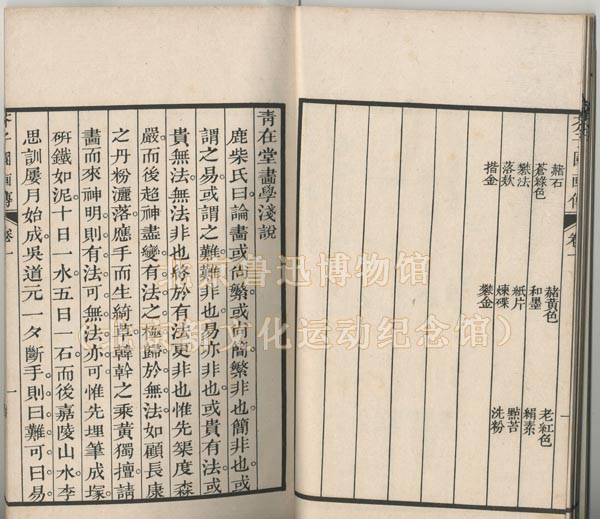 芥子園画傳 卷一 一
赭石 赭黃色 老紅色
蒼綠色 和墨 絹素
礬法 紙片 點苔
落欵 煉碟 洗粉
揩金 礬金
青在堂畫學淺說
鹿柴氏曰論畫或尚繁或尚簡繁非也簡非也或
謂之易或謂之難難非也易亦非也或貴有法或
貴無法無法非也終於有法更非也惟先榘度森
嚴而後超神盡變有法之極歸於無法如顧長康
之丹粉灑落應手而生綺草韓幹之乘黃獨擅請
畫而來神明則有法可無法亦可惟先埋筆成塚
研鐵如泥十日一水五日一石而後嘉陵山水李
思訓屢月始成吳道元一夕斷手則曰難可曰易
芥子園画傳 卷一 一
北京鲁迅博物馆
（北京新文化运动纪念馆）